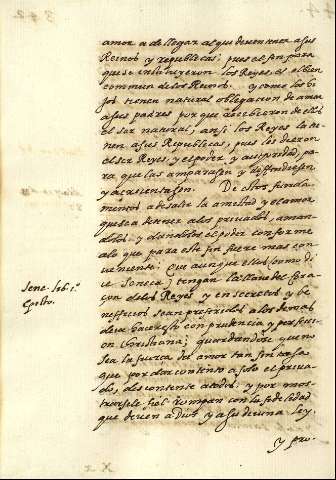 amor a de llegar al que deven tener a sus
Reinos y republicas; pues el fin para
que se instituyeron los Reyes, es el bien
commun de los Reinos. y como los hi
jos tienen natural obligacion de amar
a sus padres por que recibieron de ellos
el ser natural; ansi los Reyes la tie
nen a sus Republicas, pues les dieron
el ser Reyes, y el poder, y autoridad, pa
ra que las amparasen y defendiesen
y acrecentasen. De estos funda
mentos a de salir la amistad y el amor
que a de tener a los privados, aman
dolos, y dandoles el poder conforme
a lo que para este fin fuere mas con
veniente; Que aunque ellos, como di
ce Seneca, tengan la llave del Coraçon
de los Reyes y en secretos y be
neficios sean preferidos a los demas
deve hacerse esto con prudencia y perfeccion
Christiana; guardandose que no
sea la fuerça del amor tan sin tasa
que por dar contento a solo el priva
do, descontente a todos; y por mos
trarsele fiel rompan con la fidelidad
que deven a Dios y a su divina Ley.
y pro.
Sene. lib. 1.
Epist.